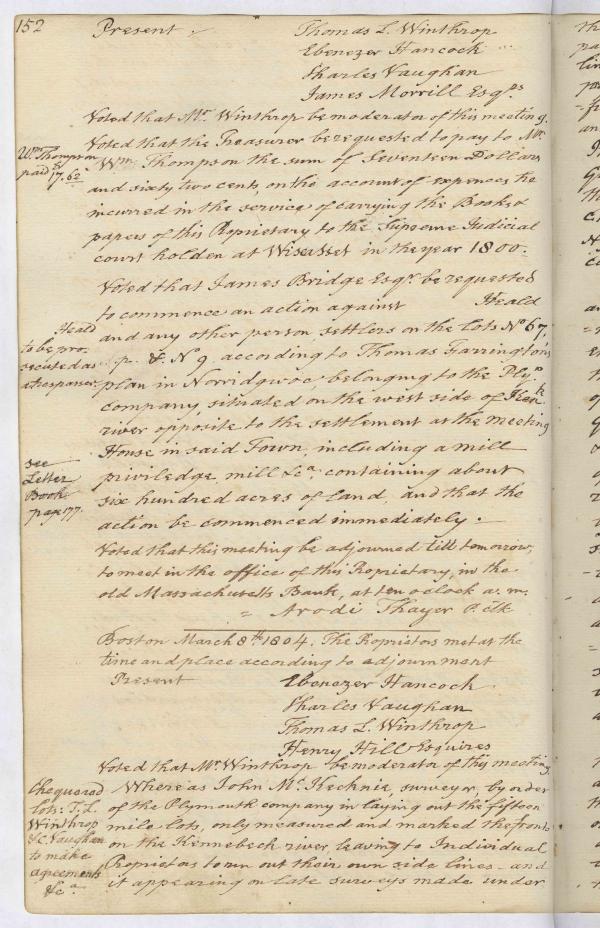 152
Present
Thomas L. Winthrop
Ebenezer Hancock
Charles Vaughan
James Morrill Esqrs
Voted that Mr Winthrop be moderator of this meeting.
Voted that the Treasurer be requested to pay to Mr
Wm Thompson the sum of Seventeen Dollars
and sixty two cents, on the account of expences he
incurred in the service of carrying the Books &
papers of this Proprietary to the Supreme Judicial
court holden at Wiscasset in the year 1800.
Wm Thompson
paid
17.62
Voted that James Bridge Esqr be requested
to commence an action against Heald
and any other person, settlers on the lots No 67,
p. & No 9 according to Thomas Farrington's
plan in Norridgwoc, belonging to the Plyo
company, situated on the west side of Kenk
river opposite to the settlement at the meeting
House in said Town, including a mill
priviledge, mill &ca, containing about
six hundred acres of land, and that the
action be commenced immediately.
Heald
to be pro=
secuted as
a trespasser.
see
Letter
Book
page 177.
Voted that this meeting be adjourned till tomorrow,
to meet in the office of this Proprietary, in the
old Massachusetts Bank, at ten oclock a. m.
= Arodi Thayer P. clk
Boston March 8th 1804. The Proprietors met at the
time and place according to adjournment
Present
Ebenezer Hancock
Charles Vaughan
Thomas L. Winthrop
Henry Hill Esquires
Voted that Mr Winthrop be moderator of this meeting
Whereas John McKechnie, surveyor, by order
of the Plymouth company in laying out the fifteen
mile lots, only measured and marked the fronts
on the Kennebeck river, leaving to Individual
Proprietors to run out their own side lines - and
it appearing on late surveys made under
Chequered
lots: T. L.
Winthrop
& C. Vaughan
to make
agreements
&ca.